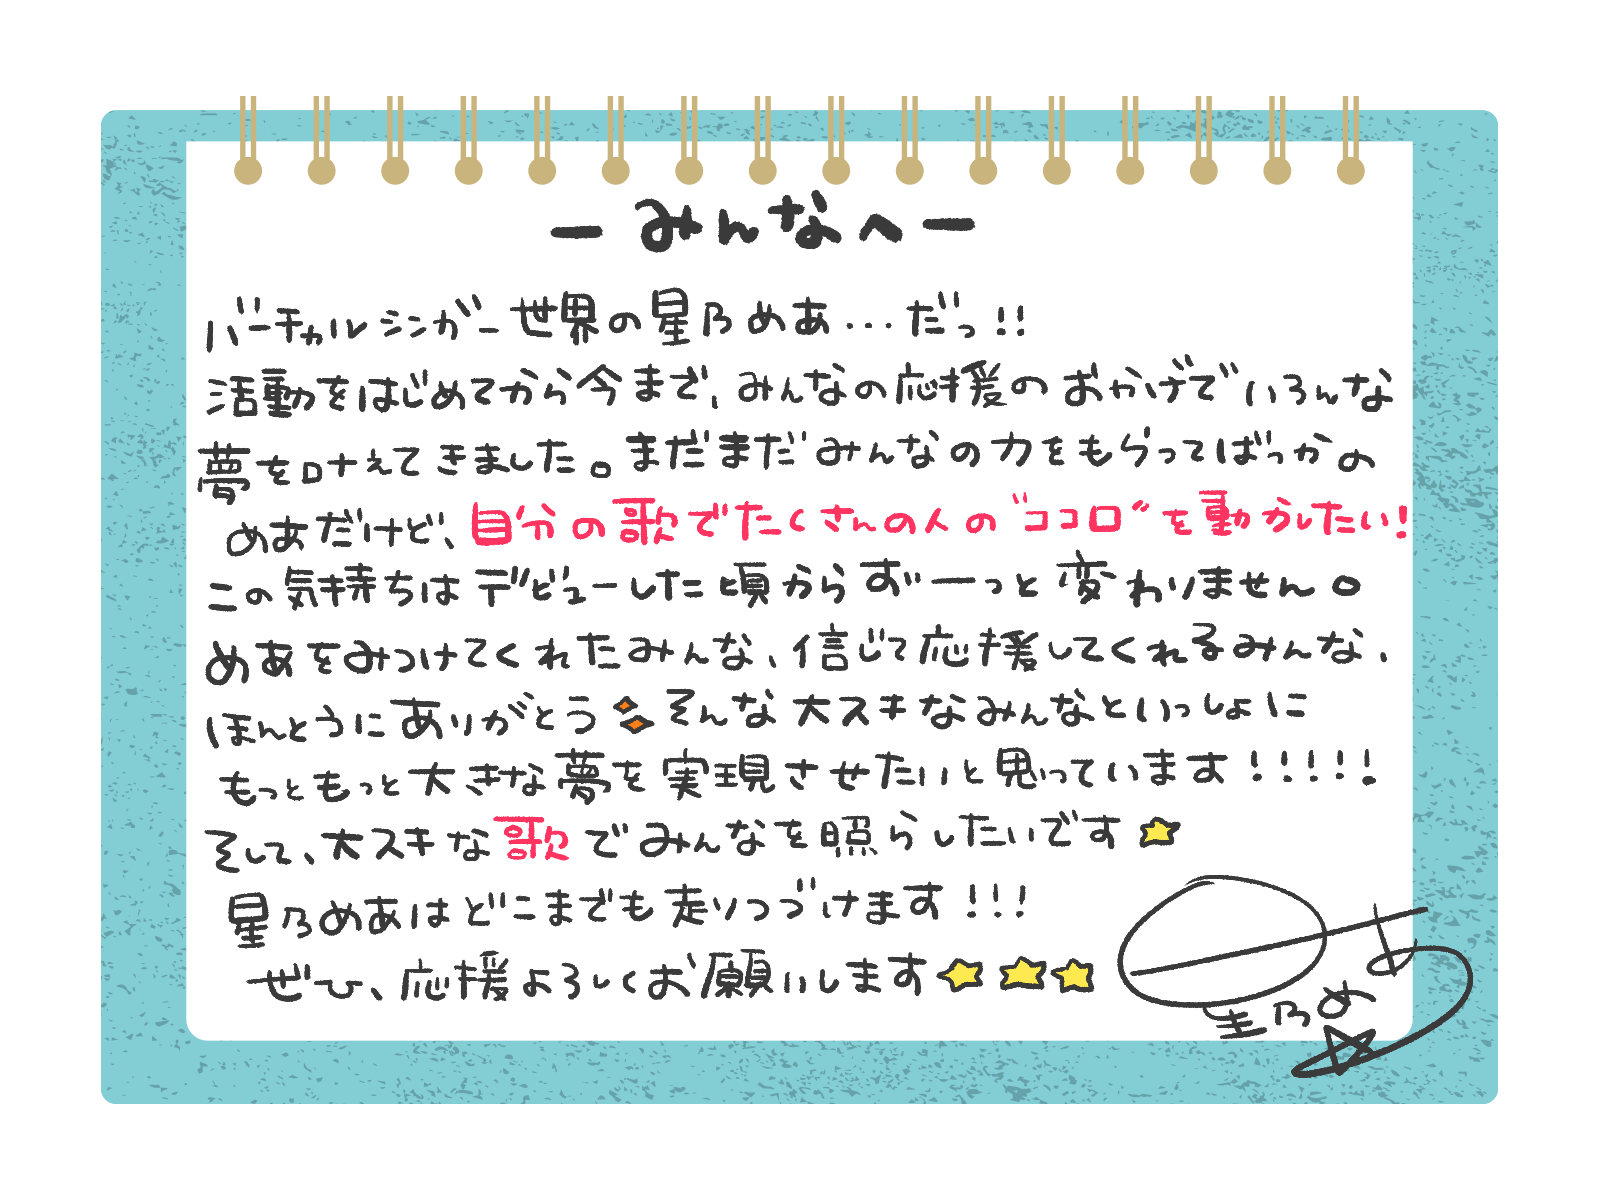 ーみんなへー
バーチャルシンガー世界の星乃めあ...だっ!!
活動をはじめてから今まで、みんなの応援のおかげでいろんな
夢を叶えてきました。まだまだみんなの力をもらってばっかの
めあだけど、自分の歌でたくさんの人の"ココロ"を動かしたい!
この気持ちはデビューした頃からずーーっと変わりません。
めあをみつけてくれたみんな、信じて応援してくれるみんな、
ほんとうにありがとう そんな大スキなみんなといっしょに
もっともっと大きな夢を実現させたいと思っています!!!!!
そして、大スキな歌でみんなを照らしたいです⭐
星乃めあはどこまでも走りつづけます!!!
ぜひ、応援よろしくお願いします⭐⭐⭐
星乃めあ